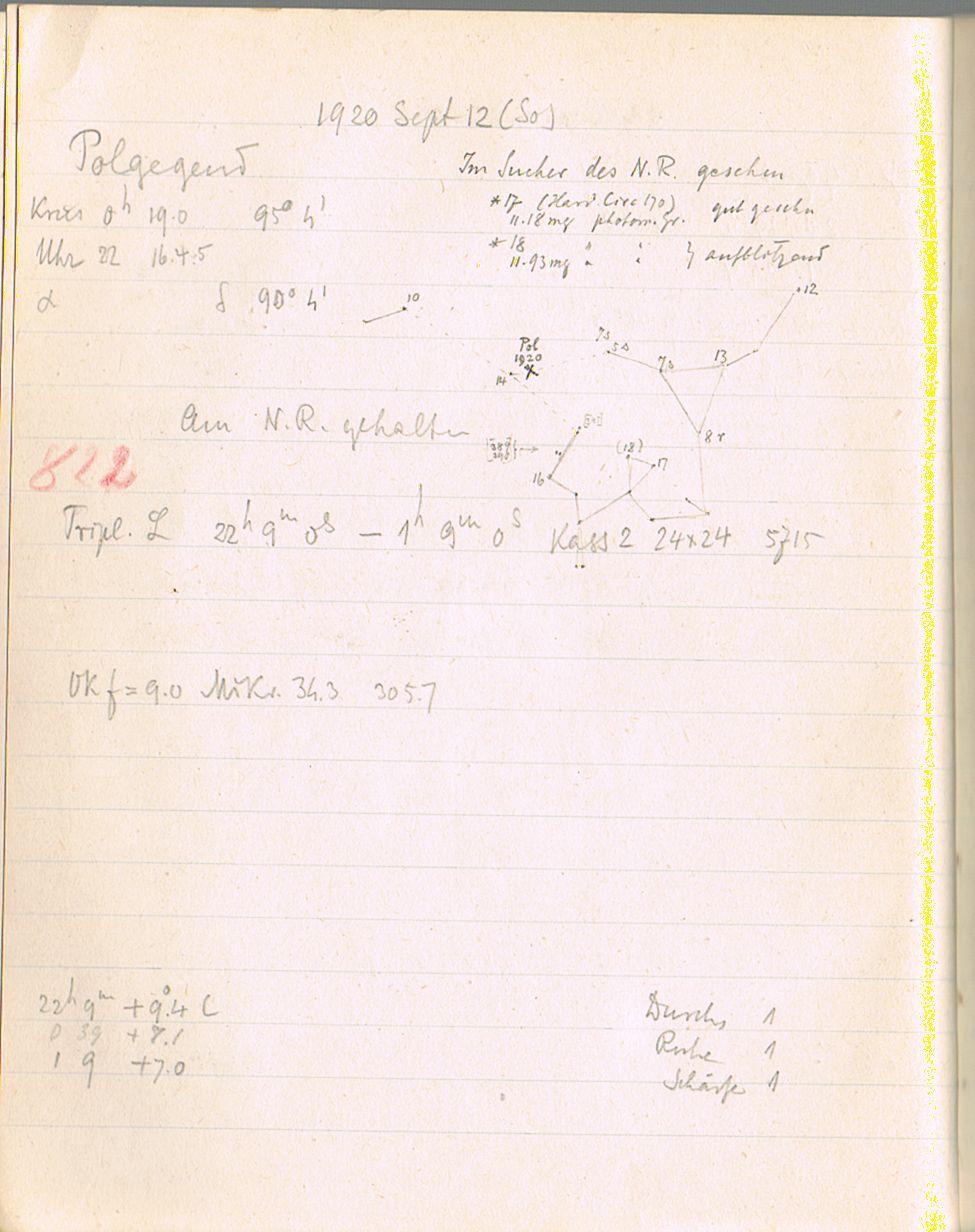 1920 Sept 12 (So)
Polgegend
Kreis 0h 19.0 95° 4'
Uhr 22 16.4.5
α δ 90° 4'
Im Sucher des N.R. gesehen
*17 (Harv. Circ 170) gut gesehn
11.18 mg photom. gr.
*18
11.93 mg " " } aufblitzend
10
12
Pol
1920
X
14
7s
5s
7s
13
8r
16
(18)
17
Am N.R. gehalten
822
Tripl. L 22h 9m 0s — 1h 9m 0s Kass 2 24x24
OK f = 9.0 Mikr. 34.3 305.7
22h 9m +9°.4 C
0 39 +8.1
1 9 +7.0
Durchs 1
Ruhe 1
Schärfe 1